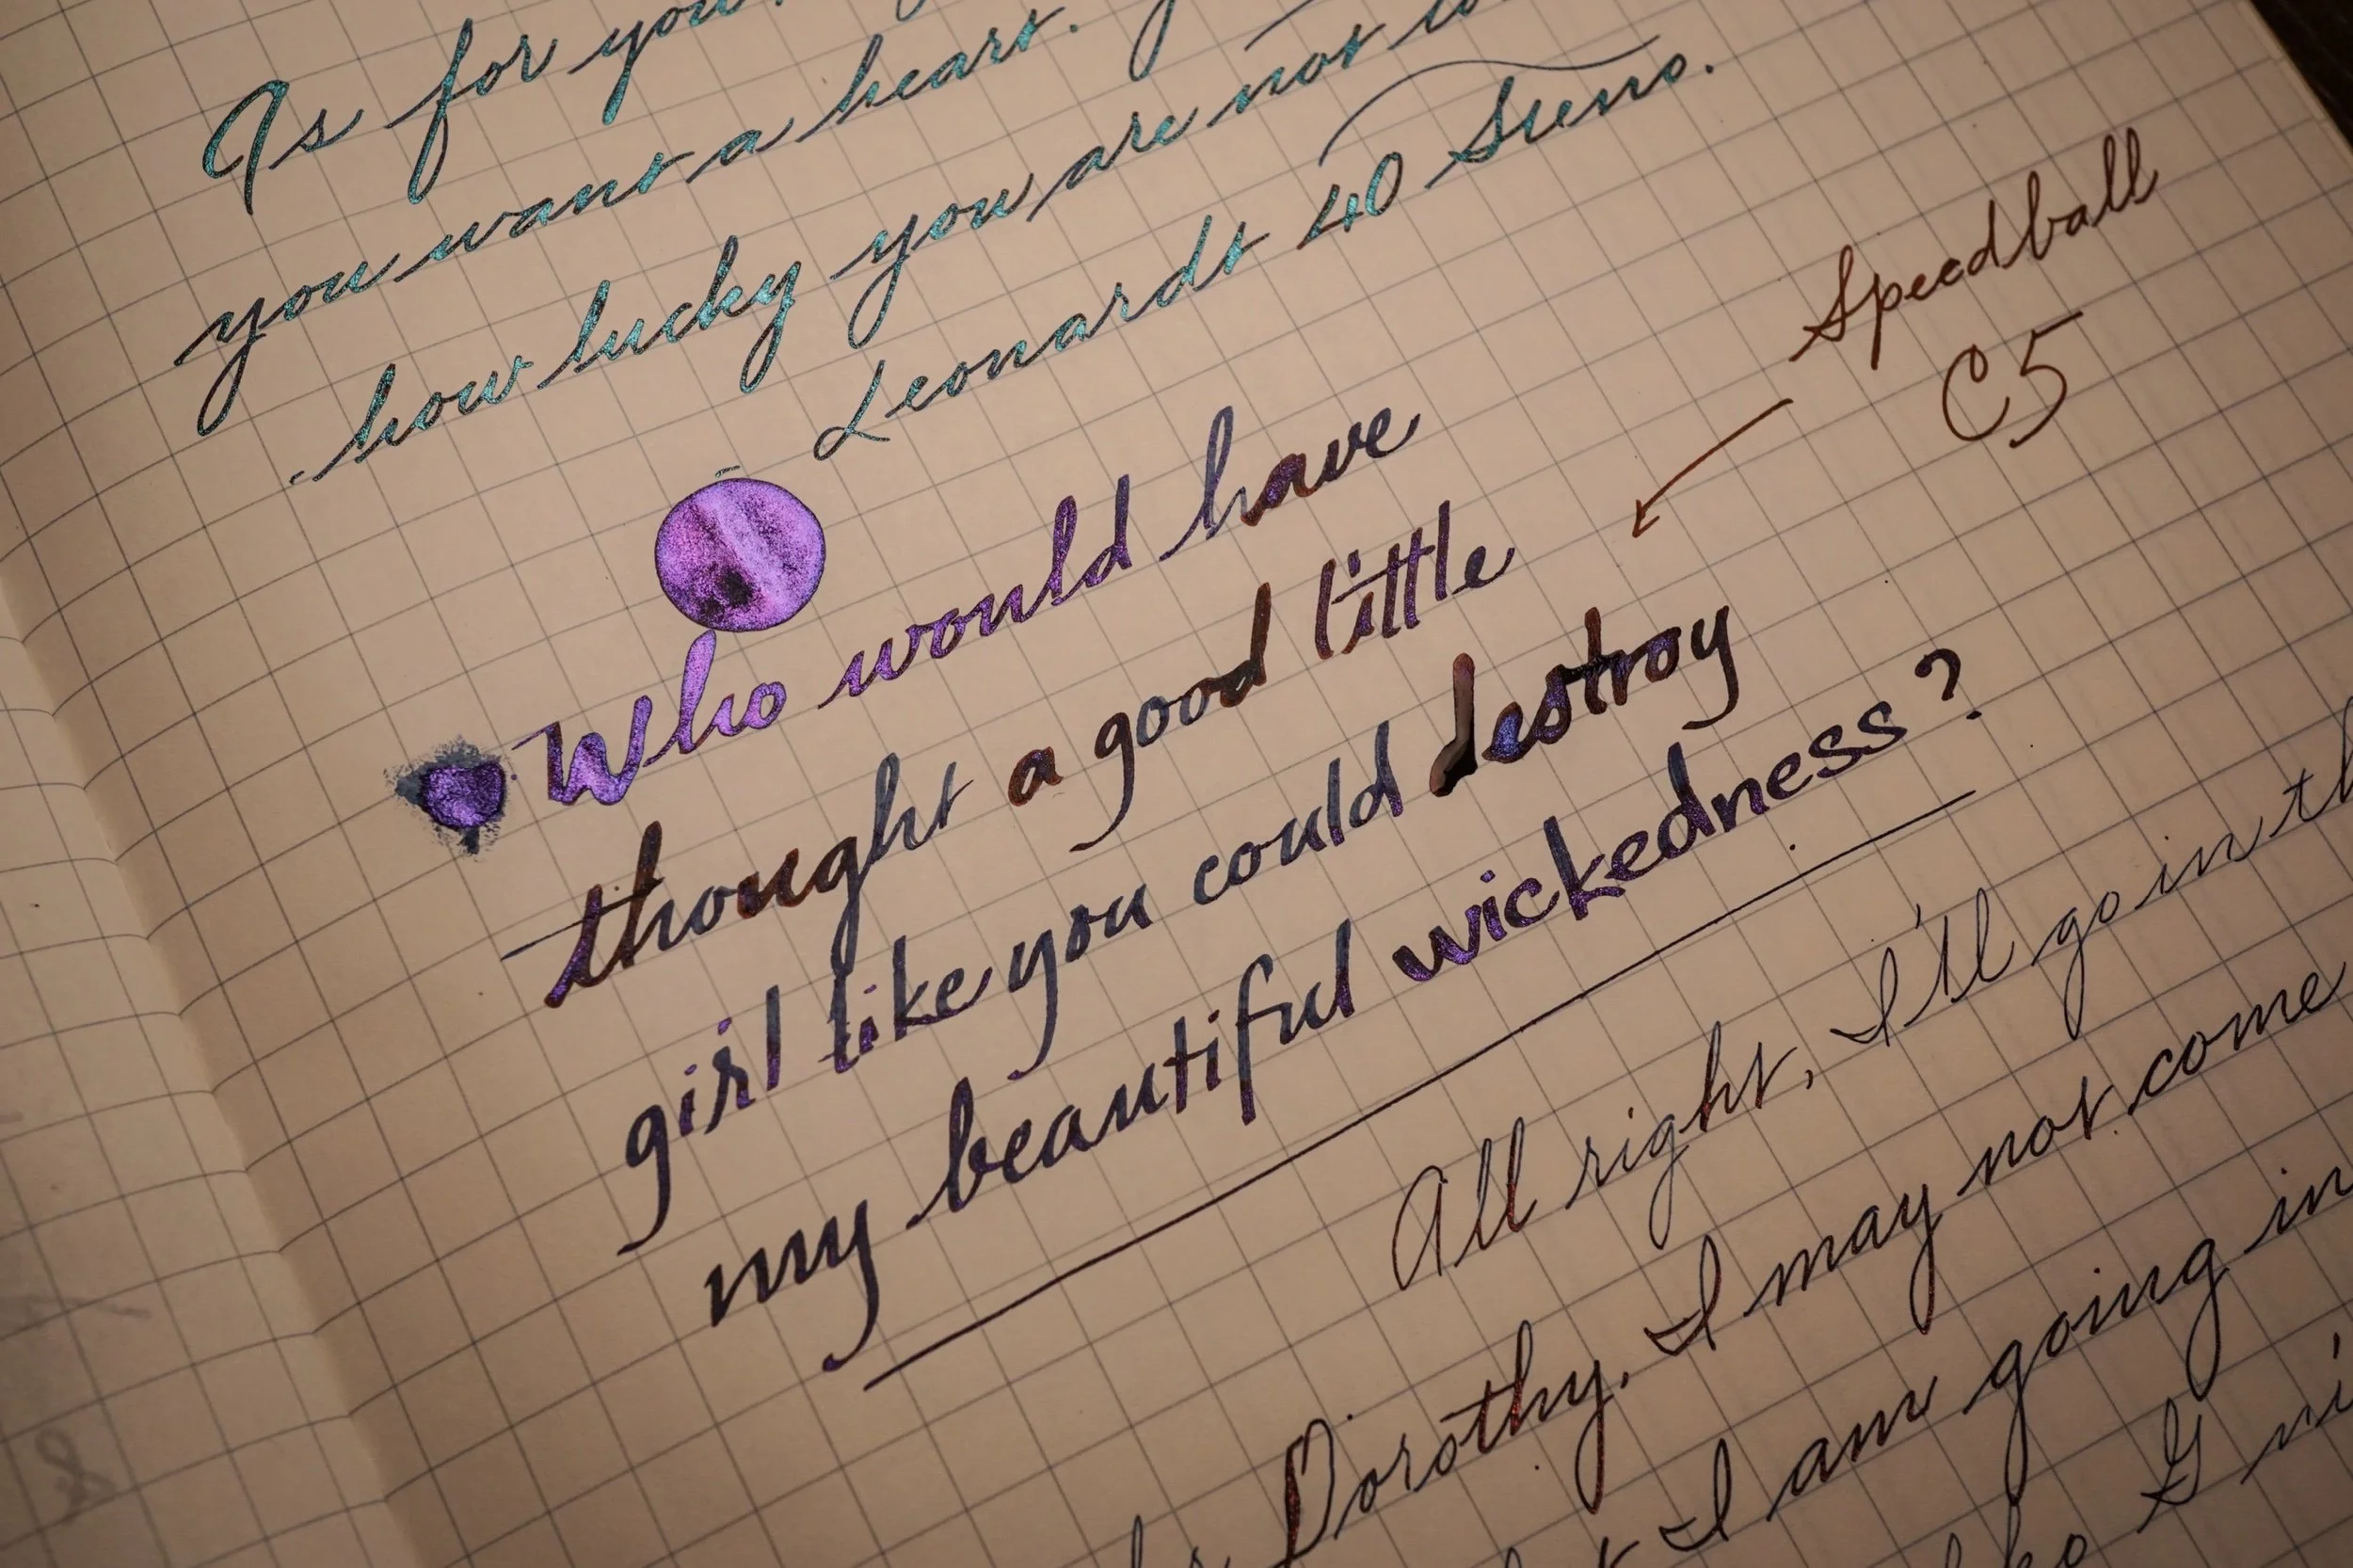 As for you
you want a heart.
how lucky you are not
Leonardt 40 Steno.
Speedball
C5
Who would have
thought a good little
girl like you could destroy
my beautiful wickedness?
All right, I'll go in
Dorothy. I may not come
I am going in